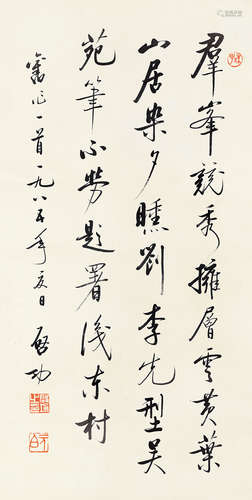 羣峯競秀擁層雲黄葉
山居樂夕曛劉李先型吳
苑筆不勞題署淺東村
舊作一首一九八五年夏日 啟功